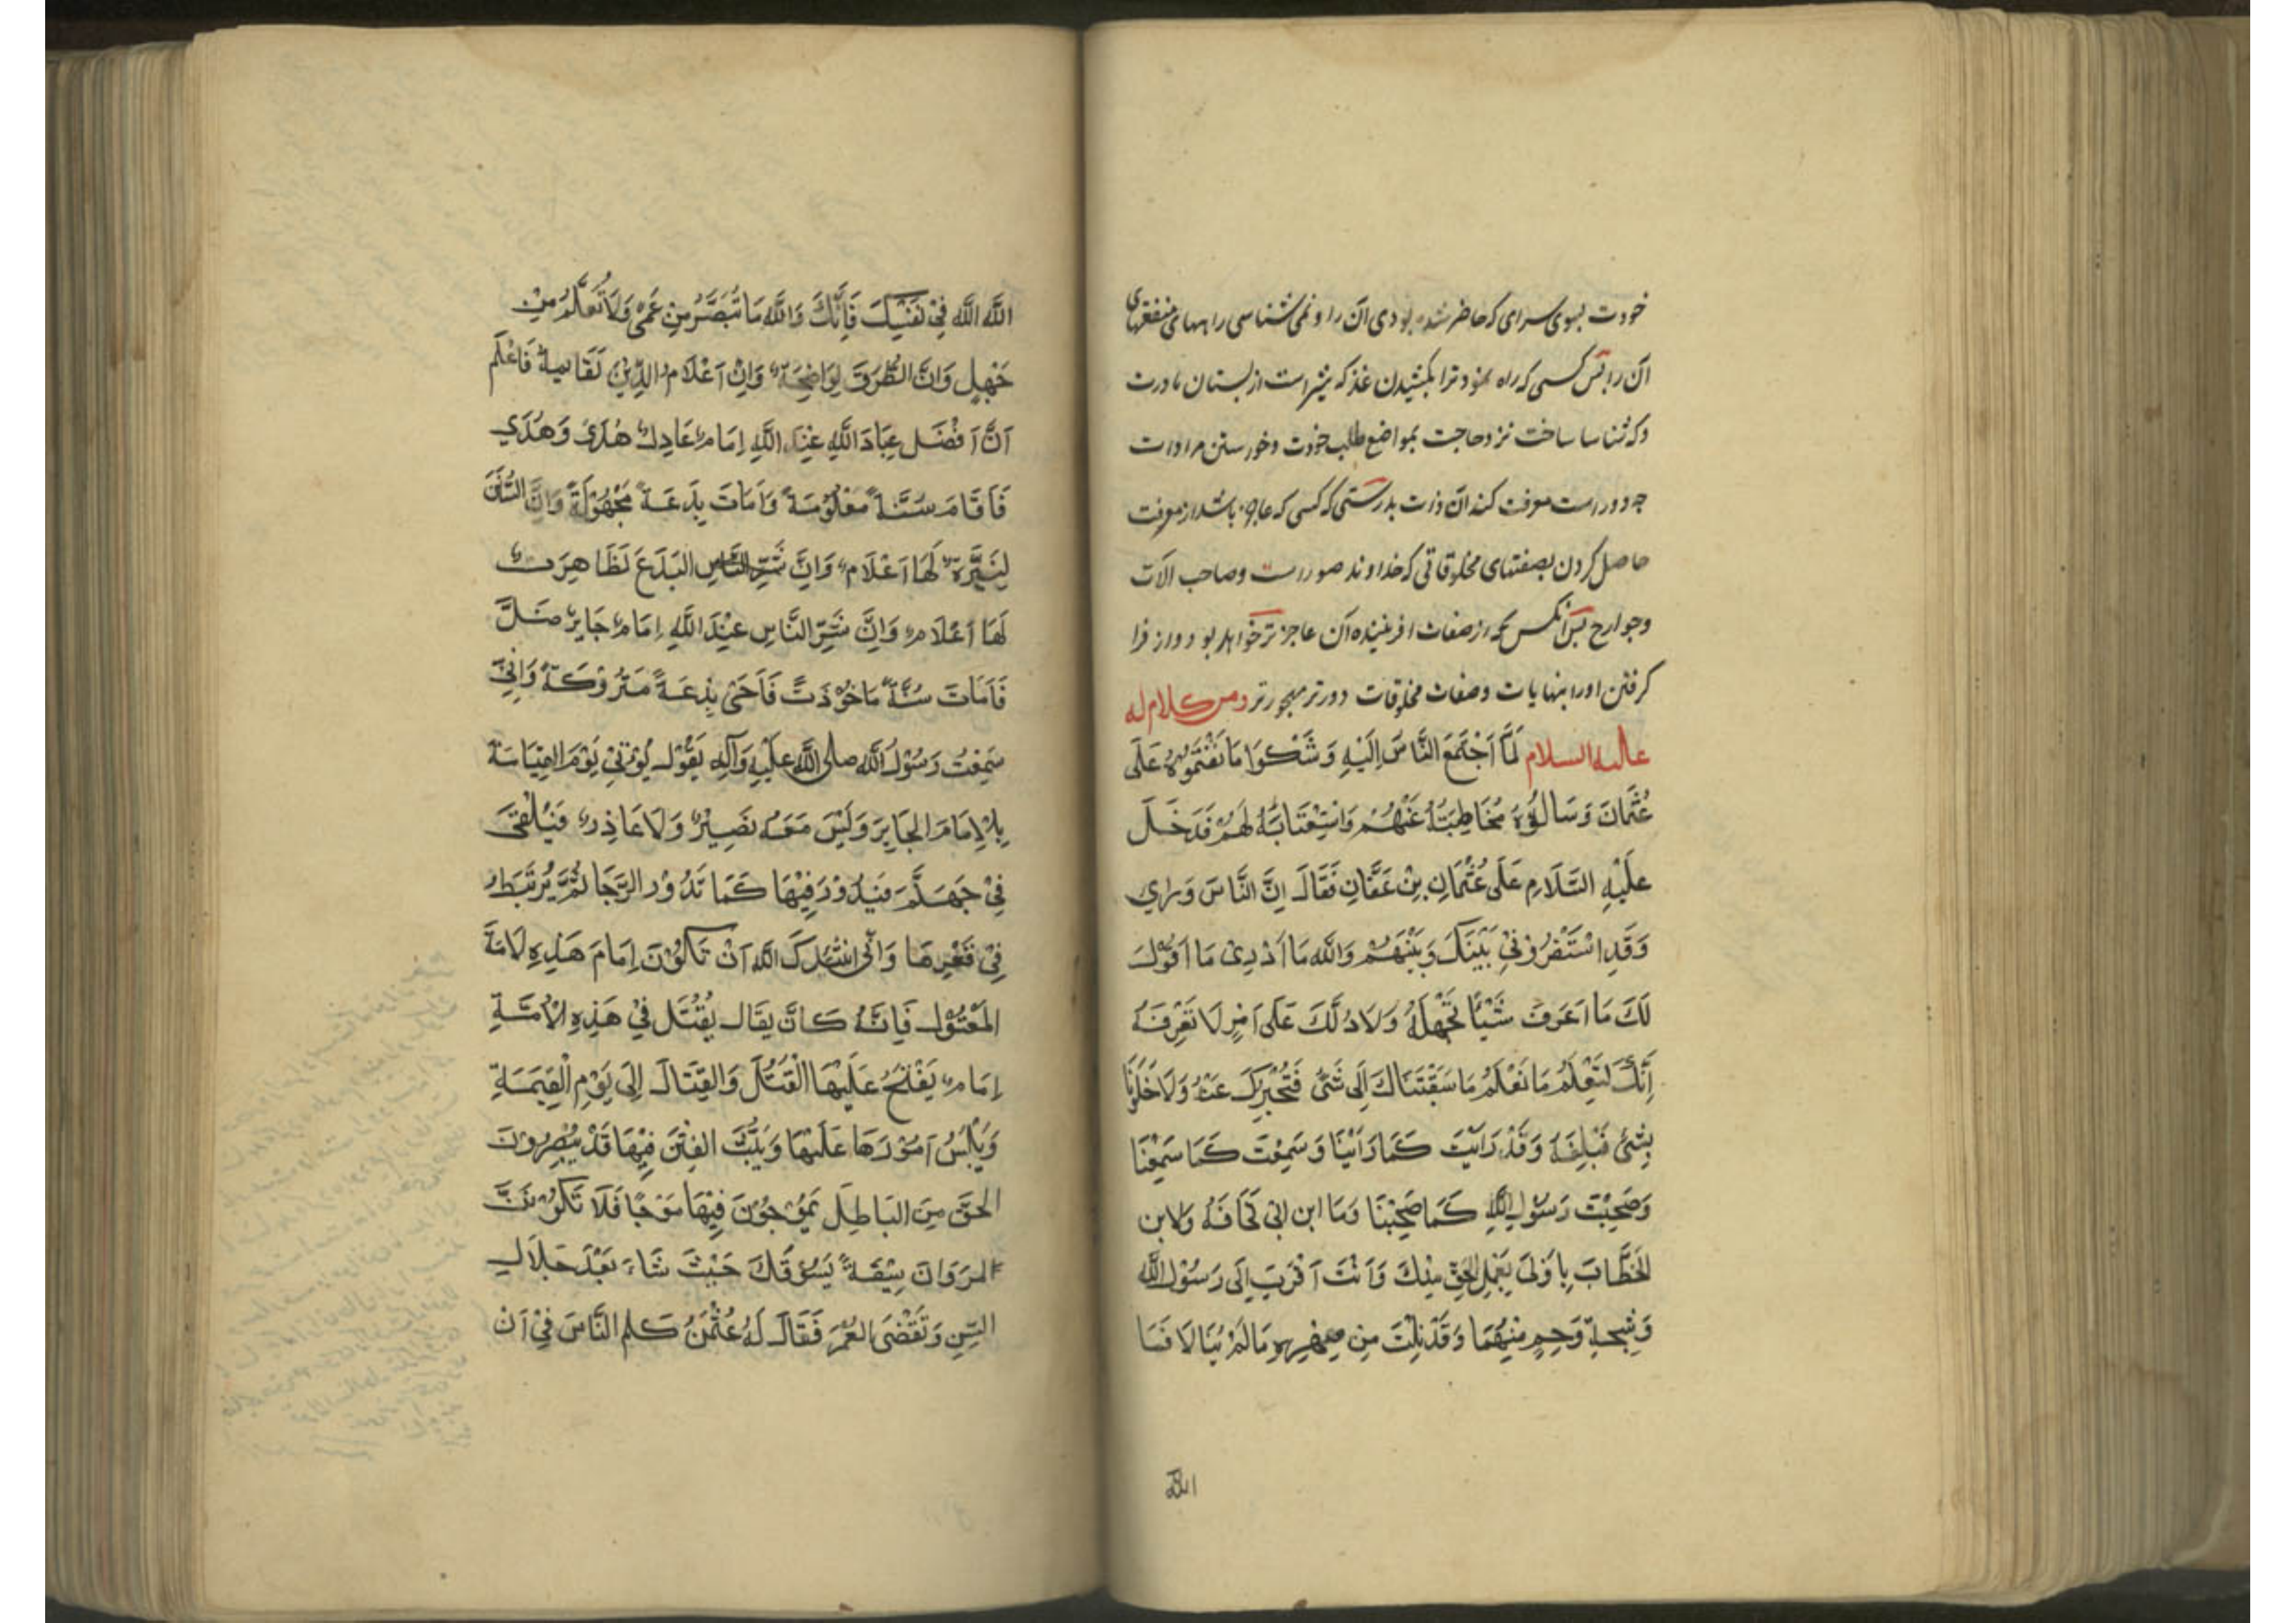 خودت بسوی سرای که حاضر نشده بودی آن را و نمی شناسی راههای منفعتهای
آن را پس کسی که راه نمود ترا بکشیدن غذا که شیر است از پستان مادرت
و که شناسا ساخت نزد حاجت بمواضع طلب خودت و خواستن مرادات
چه دور است معرفت کنه آن ذات بدرستی که کسی که عاجز باشد از معرفت
حاصل کردن بصفتهای مخلوقاتی که خداوند صور است و صاحب آلات
و جوارح پس آنکس که از صفات آفریننده آن عاجزتر خواهد بود و از فرا
گرفتن او را بنهایات و صفات مخلوقات دورتر مهجورتر ومن كلام له
عليه السلام لَمَّا اَجْتَمَعَ النَّاسَ اِلَيْهِ وَشَكَوَا مَا نَقَمُوهُ عَلَى
عُثْمَانَ وَسَالُوْهُ مُخَاطِبَتَهُ عَنْهُمْ وَاسْتِعْتَابَهُ لَهُمْ فَدَخَلَ
عَلَيْهِ السَّلَامِ عَلَى عُثْمَانِ بِنْ عَفَّانِ فَقَالَ اِنَّ النَّاسَ وَرَاي
وَقَدِ اسْتَسْفَرُوْنِي بَيْنَكَ وَبَيْنَهُمْ وَاللهِ مَا اَدْرِيْ مَا اَقُوْلُ
لَكَ مَا اَعَرِفُ شَيْئًا تَجْهَلَهُ وَلَا اَدُلُّكَ عَلَى اَمْرٍ لَا تَعْرِفَهُ
اِنَّكَ لَتَعْلَمُ مَا نَعْلَمُ مَا سَبَقْنَاكَ اِلَى شَئْ فَنُخْبِرَكَ عَنْهُ وَلَا خَلَوْنَا
بِشَئْ فَنُبْلِغَهُ وَقَدْ رَاَيْتَ كَمَا رَاَيْنَا وَسَمِعْتَ كَمَا سَمِعْنَا
وَصَحِبْتَ رَسُوْلَ اللهِ كَمَا صَحِبْنَا وَمَا ابن ابي قحَافَهُ وَلَا ابن
الخَطَّابَ بِاَوْلَى بِعَمَلِ الحَقِّ مِنْكَ وَاَنْتَ اَقْرَبَ اِلَى رَسُوْلِ اللهِ
وَشِيجَة رَحِمٍ مِنْهُمَا وَقَدْ نِلْتَ مِن صِهْرِهِ مَا لَمْ يَنَالَا فَـ
الله
اللهَ اللهَ فِيْ نَفْسِكَ فَاِنَّكَ وَاللهِ مَا تُبَصَّرُ مِنِ عَمًى وَلَا تُعَلَّمُ مِنْ
جَهْلٍ وَاِنَّ الطُّرُقَ لَوَاضِحَةٌ وَاِنَّ اَعْلَامَ الدِّيْنِ لَقَائمة فَاعْلَمْ
اَنَّ اَفْضَلَ عِبَادَ اللهِ عِنْدَ اللهِ اِمَامٌ عَادِلٌ هُدِيَ وَهَدَي
فَاَقَامَ سُنَّةً مَعْلُوْمَةً وَاَمَاتَ بِدْعَةً مَجْهُوْلَةً وَاِنَّ السُّنَنَ
لَنَيِّرَةٌ لَهَا اَعْلَامٌ وَاِنَّ البَدَعَ لَظَاهِرَتٌ
لَهَا اَعْلَامٌ وَاِنَّ شَرَّ النَّاسِ عِنْدَ اللهِ اِمَامٌ جَايِرٌ ضَلَّ
فَاَمَاتَ سُنَّةً مَاخُوْذَتً فَاَحَىْ بِدْعَةً مَتْرُوْكَةً وَاِنِّيْ
سَمِعْتُ رَسُوْلَ اللهِ صلى الله عَلَيْهِ وَآلِهِ يَقُوْلُ يُوْتىْ يَوْمَ القِيَامَةَ
بِالْاِمَامَ الجَايِرَ وَلَيْسَ مَعَهُ نَصِيْرٌ وَلَا عَاذِرٌ فَيُلْقىَ
فِيْ جَهَنَّمَ فَيَدُوْرَ فِيْهَا كَمَا تَدُوْرُ الرَّحَا ثُمَّ يُرْتَبَطُ
فِيْ قَعْرِهَا وَاَنّى اَنْشُدُكَ اللهَ اَنْ تَكُوْنَ اِمَامَ هَذِهِ لَامَةَ
المَقْتُوْلَ فَاِنَّهُ كَانَ يقَالُ يُقْتَل فيْ هَذِهِ الْاُمَّةِ
اِمَامٌ يَفْتَحُ عَلَيْهَا الْقَتْلَ وَالقِتَالَ اِلَى يَوْمِ الْقِيمَةِ
وَيَلْبِسُ اُمُوْرَهَا عَلَيْهَا وَيَبُثُّ الفِتَنَ فِيْهَا فَلَا يُبْصِرُوْنَ
الحَقَّ مِنَ البَاطِلِ يَمُوْجُوْنَ فِيْهَا مَوْجًا فَلَا تَكُوْنَنَّ
لمرَوَانَ سِيْقَةً يَسُوْقُكَ حَيْثُ شَاءَ بَعْدَ جَلَالِ
السِّنِ وَتَقَضّى العُمْرِ فَقَالَ لَهُ عُثْمَنُ كَلم النَّاسَ فِيْ اَنْ